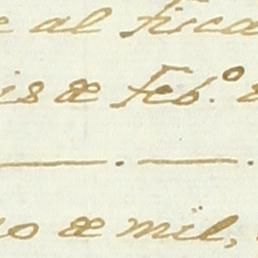 e al fisca
is de Feb.º
os de mil,